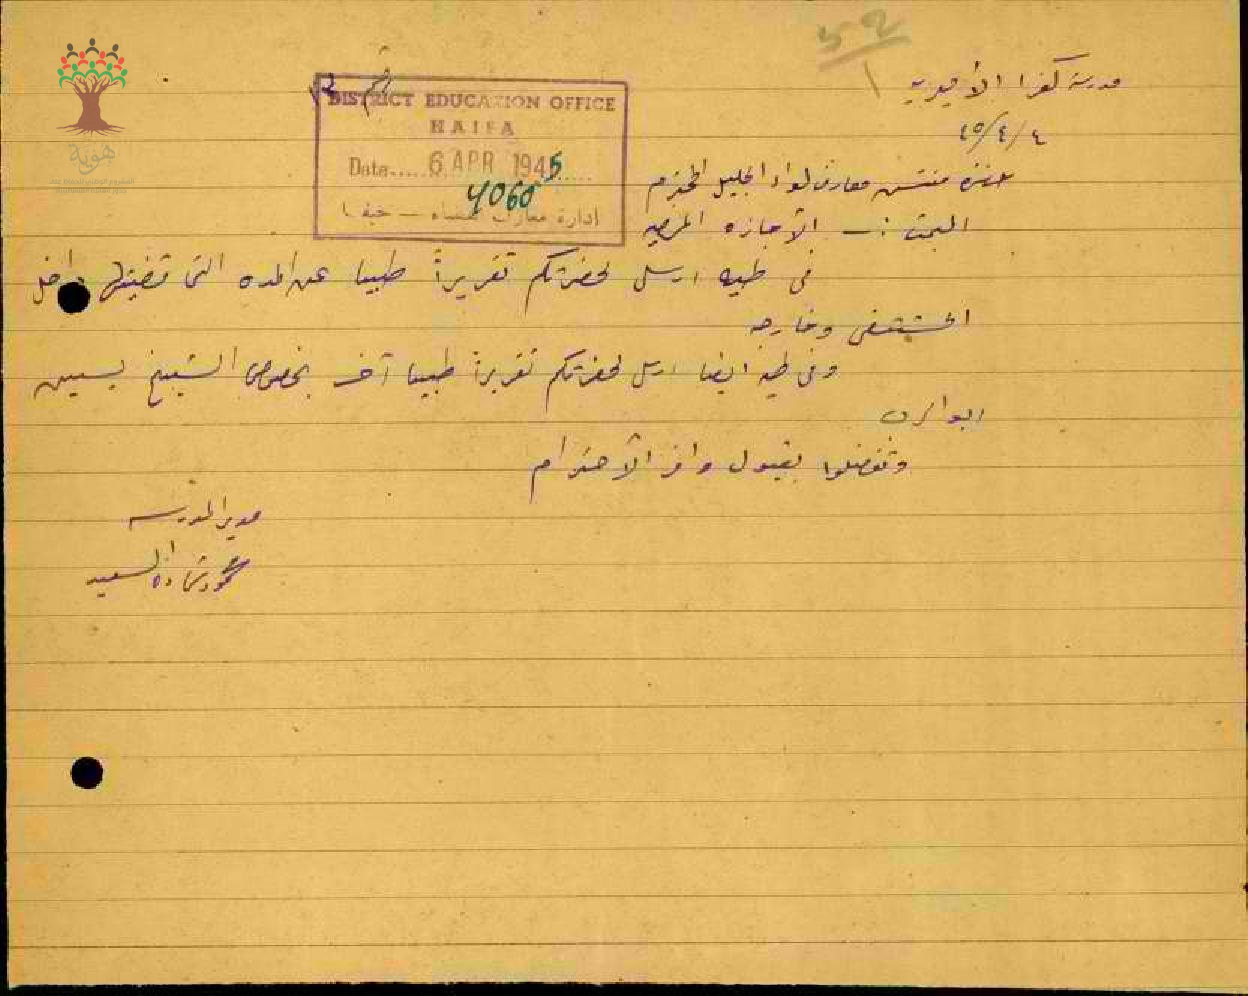 مدرسة كفرا الأميرية
٤/٤/٤٥
DISTRICT EDUCATION OFFICE
HAIFA
Date..... 6 APR 1945
4060
ادارة معارف حيفا
حضرة مفتش معارف لواء الجليل المحترم
البحث :ـ الأجازه المرضيه
في طيه ارسل لحضرتكم تقريراً طبيا عن المده التي قضيتها داخل
المستشفى وخارجه
وفي طيه ايضا ارسل لحضرتكم تقريراً طبيا آخر بخصوص الشيخ يسين
ابو
وتفضلوا بقبول وافر الأحترام
مدير المدرسه
محمود السعيد
هوية